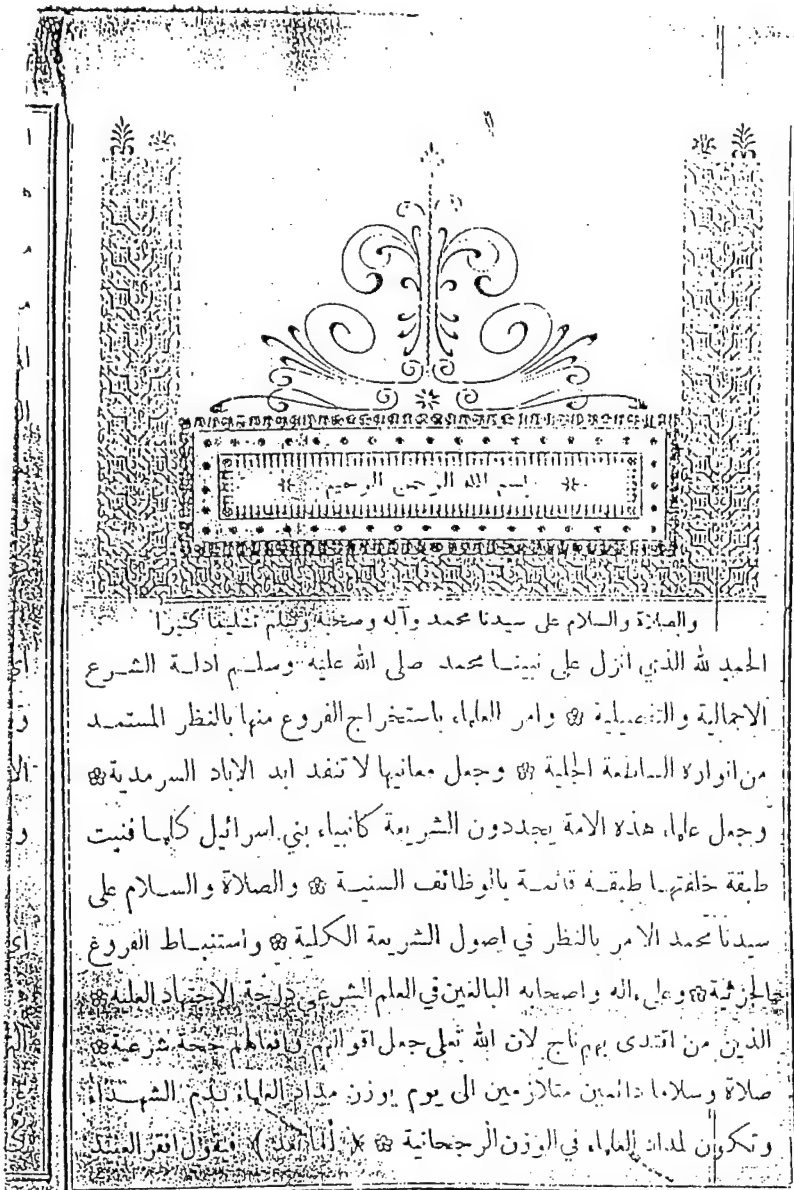 بسم الله الرحمن الرحيم
والصلاة والسلام على سيدنا محمد وآله وصحبه وسلم تسليما كثيرا
الحمد لله الذي انزل على نبينا محمد صلى الله عليه وسلم ادلة الشرع
الاجمالية والتفصيلية ۞ وامر العلماء باستخراج الفروع منها بالنظر المستمد
من انواره الساطعة الجلية ۞ وجعل معانيها لا تنفد ابد الاباد السرمدية ۞
وجعل علماء هذه الامة يجددون الشريعة كانبياء بني اسرائيل كلما فنيت
طبقة خلفتها طبقة قائمة بالوظائف السنية ۞ والصلاة والسلام على
سيدنا محمد الامر بالنظر في اصول الشريعة الكلية ۞ واستنباط الفروع
الجزئية ۞ وعلى اله واصحابه البالغين في العلم الشرعي درجة الاجتهاد العلية ۞
الذين من اقتدى بهم ناج لان الله تعلى جعل اقوالهم وافعالهم حجة شرعية ۞
صلاة وسلاما دائمين متلازمين الى يوم يوزن مداد العلماء بدم الشهداء
وتكون لمداد العلماء في الوزن الرجحانية ۞ ( اما بعد ) فيقول افقر العبيد